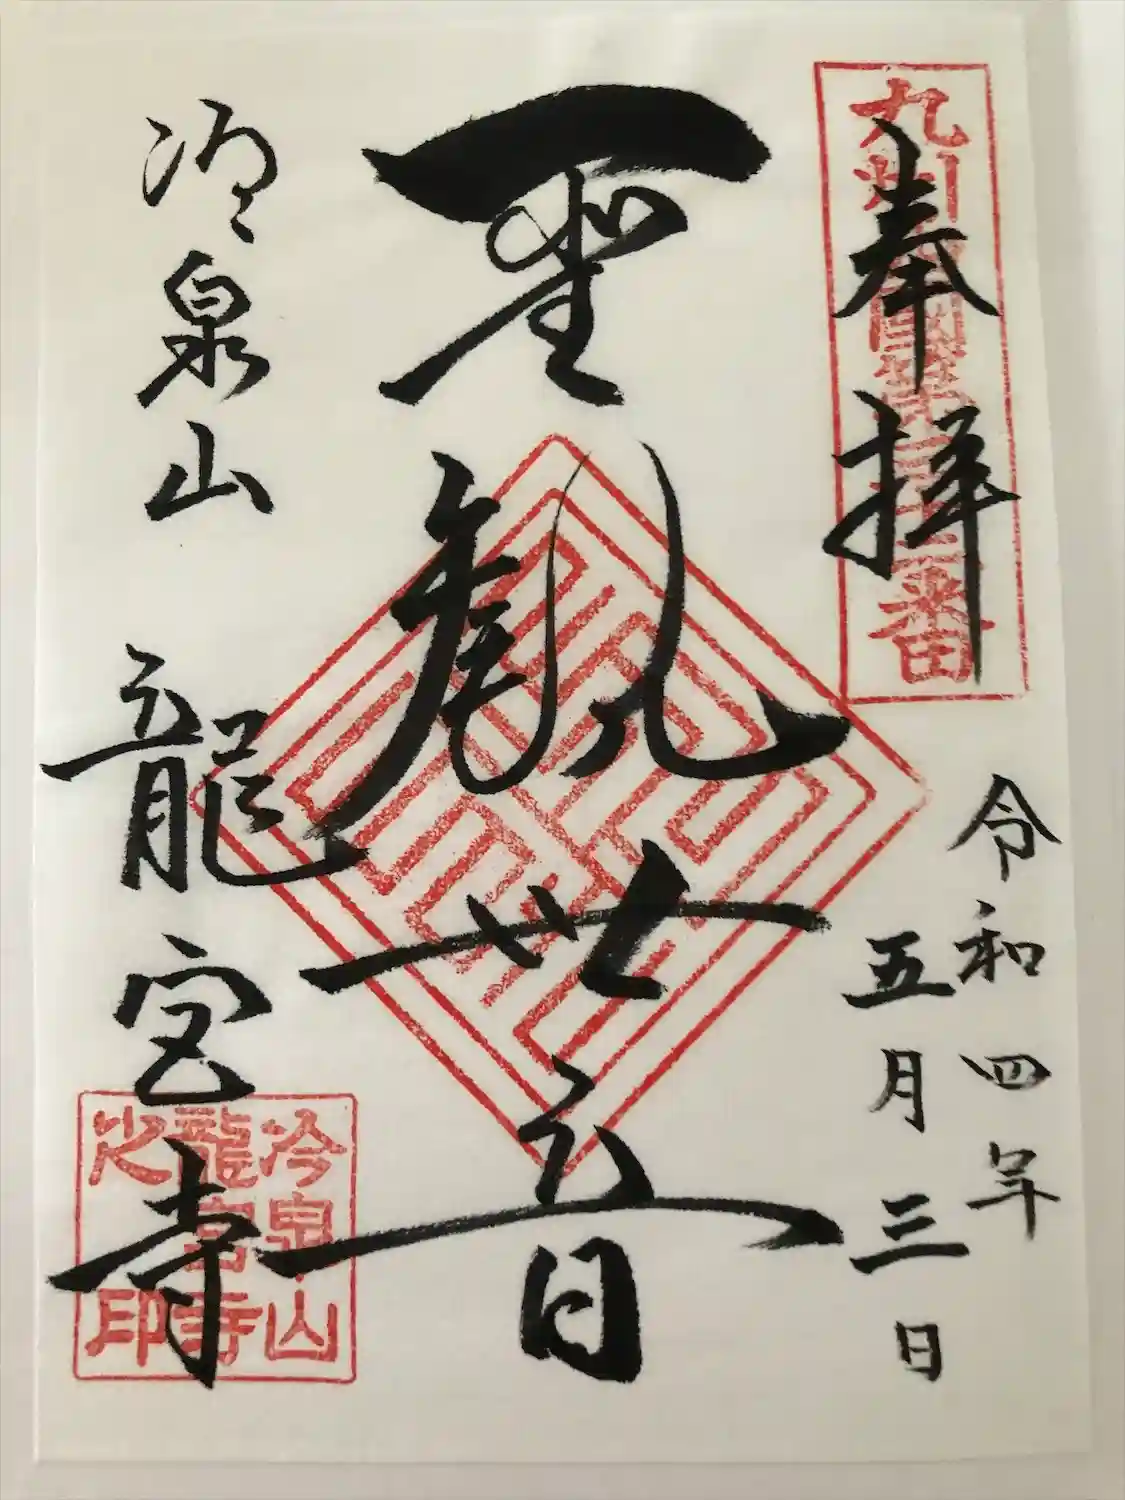 奉拝
令和四年
五月三日
聖観世音
冷泉山 龍宮寺
冷泉山
龍宮寺
之印